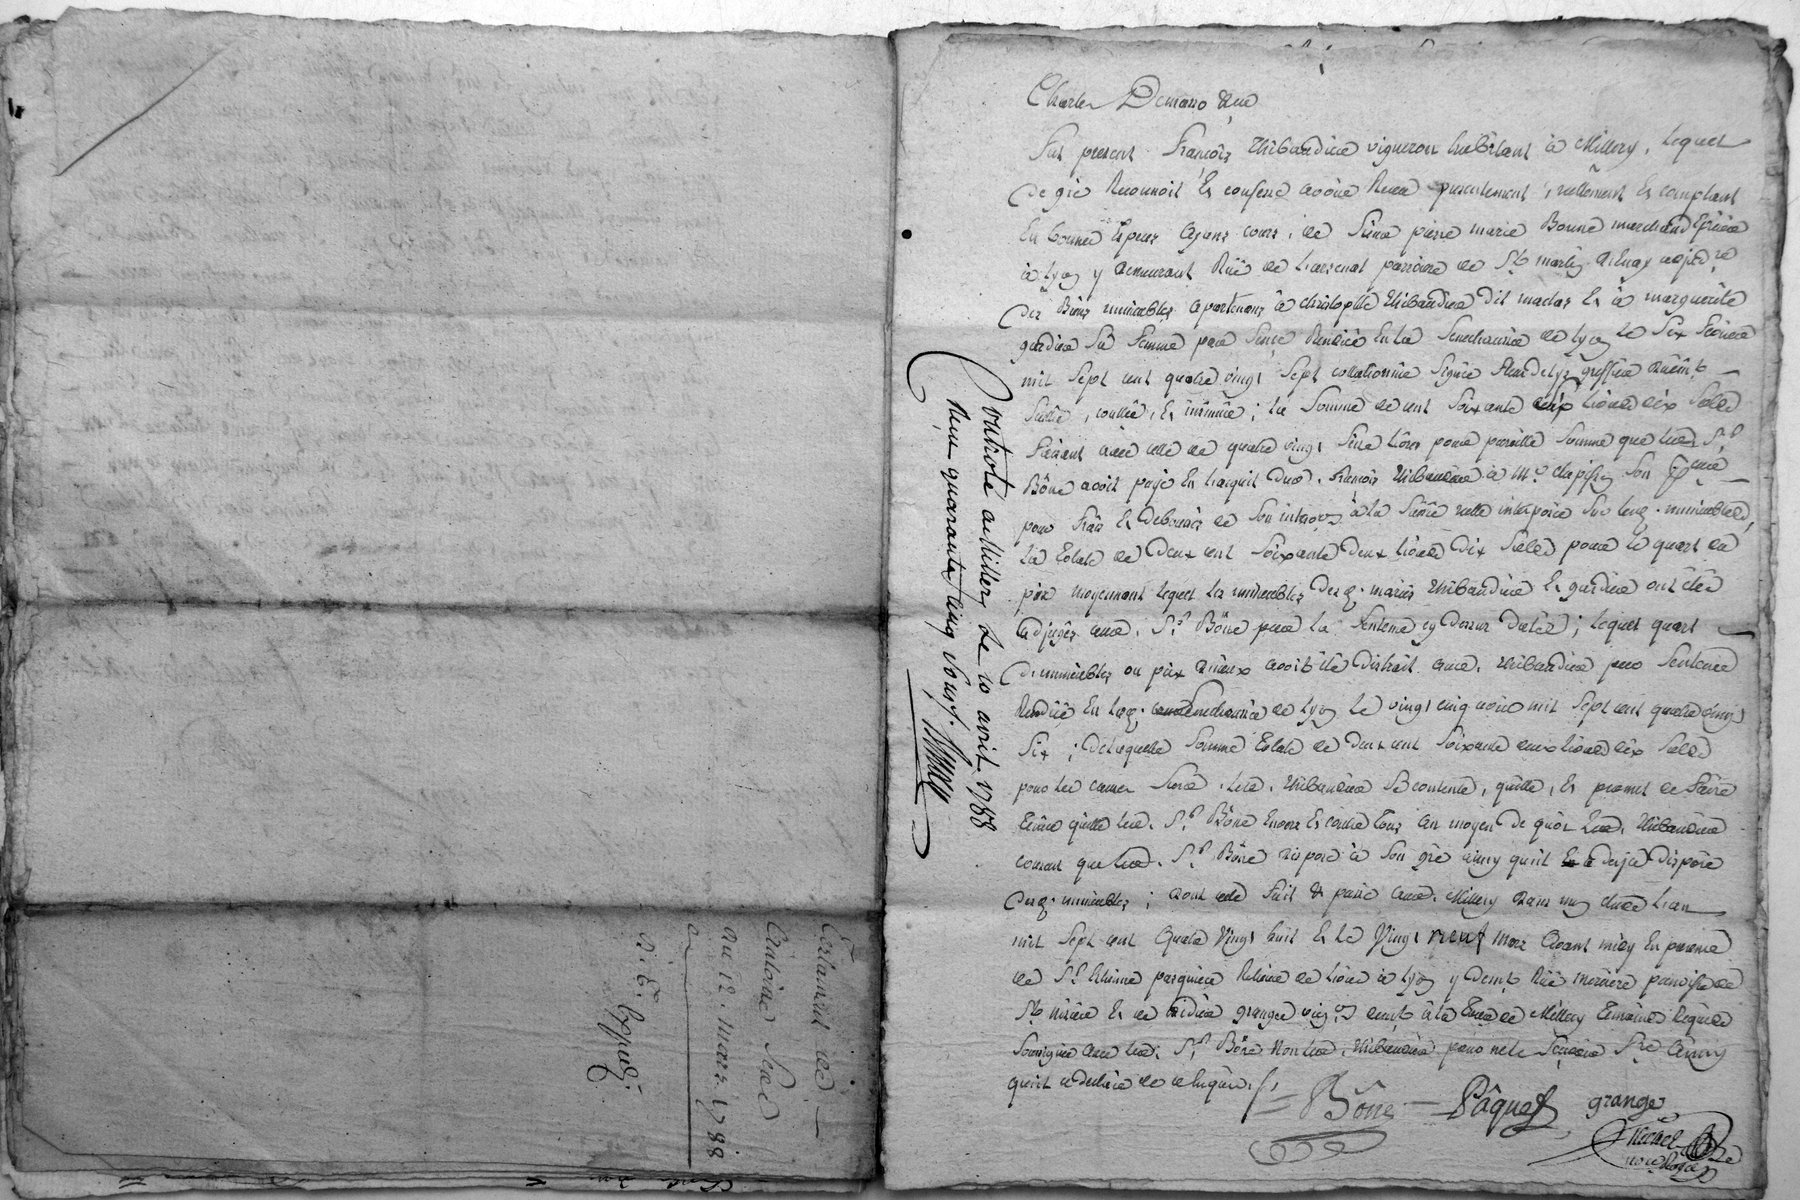 Testament de
Antoine
du 12. mars. 1788
Charles
Fut present François Thibaudier vigneron habitant à Millery, lequel
de gré Reconnoit Et confesse avoir Receu presentement, réellement Et comptant
En bonnes Espèces ayans cours, de Sieur pierre marie Bonne marchand Epicier
à Lyon y demeurant Rüe de Larsenal paroisse de St martin Dainay
des Biens immeubles apartenans à christophle Thibaudier dit Et à marguerite
gardier Sa Femme par Rendüe En La Senechaussée de Lyon Le Six Fevrier
mil Sept cent quatre vingt Sept collationnée Signée greffier
Scellée, controllée, Et insinuée; La Somme de cent Soixante livres dix Sols
Faisant avec celle de quatre vingt livres pour pareille Somme que led. Sr
Bône avoit payé En Lacquit dud. François Thibaudier à Me Son
pour Frais Et Deboursés de Son à la Saisie réelle interposée Sur lesd. immeubles
La Totale de Deux cent Soixante Deux livres Dix Sols pour le quart du
prix moyennant lequel les immeubles desd. mariés Thibaudier Et gardier ont été
adjugés aud. Sr Bône par la Sentence cy dessus datée; lequel quart
D'immeubles ou prix d'iceux avoit été Distrait aud. Thibaudier par Sentence
Rendüe En lad. Senechaussée de Lyon Le vingt cinq mil Sept cent quatre vingt
Six; De laquelle Somme Totale de Deux cent Soixante deux livres dix Sols
pour les causes led. Thibaudier Se contente, quitte, Et promet de Faire
Tenir quitte led. Sr Bône Envers Et contre Tous au moyen De quoi led. Thibaudier
consent que led. Sr Bône dispose à Son gré ainsy qu'il a deja Disposé
desd. immeubles; dont acte Fait & passé aud. Millery Lan
mil Sept cent Quatre Vingt huit Et Le Vingt neuf mars Avant midy En presence
de Sr Etienne Relieur de livres à Lyon y demt Rüe merciere paroisse de
St nizier Et de granger demt à la de Millery Temoins Requis
Soussignés avec led. Sr Bône Non led. Thibaudier pour ne le Sçavoir ainsy
quil a declaré de ce Enquis.
Bône Pâquet granger
Controlé a Millery Le 10 avril 1788
Reçu quarante Cinq Sous.